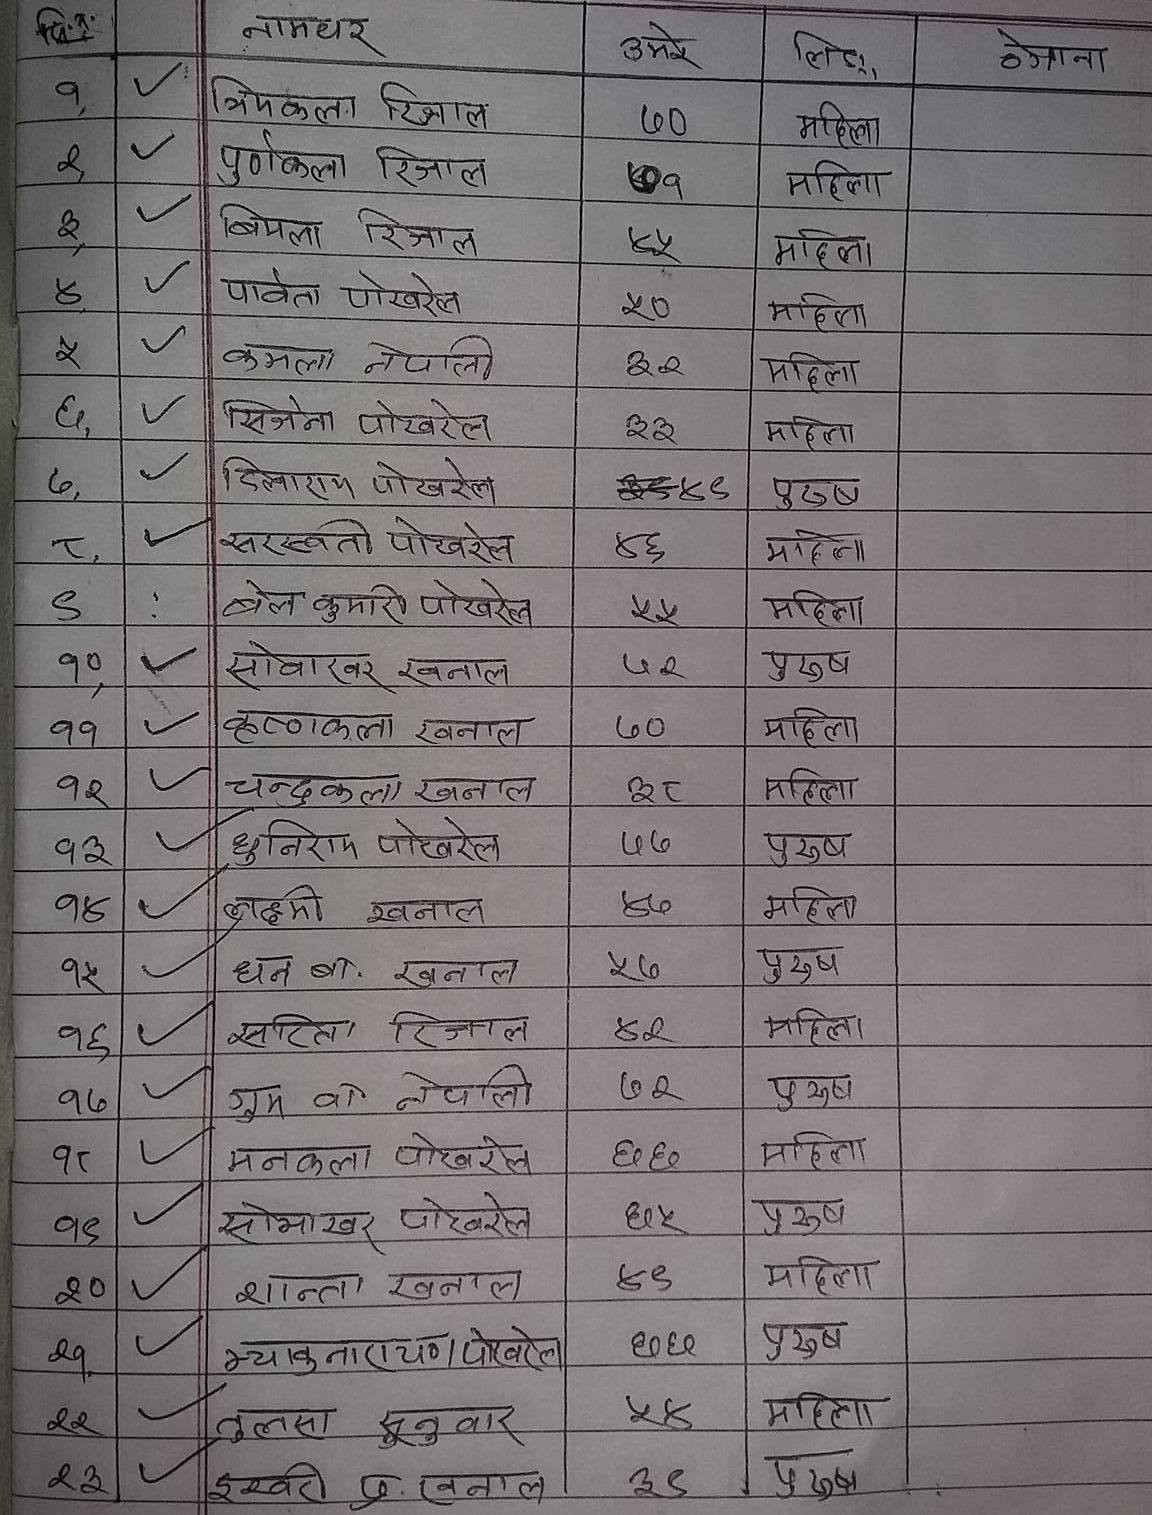 नामथर उमेर लिङ्ग ठेगाना
१, ✓ रिजाल ७० महिला
२, ✓ पुर्णकला रिजाल ७१ महिला
३, ✓ बिमला रिजाल ४५ महिला
४, ✓ पार्वता पोखरेल ५० महिला
५ ✓ कमला नेपाली ३२ महिला
६, ✓ सिर्जना पोखरेल ३३ महिला
७, ✓ डिलाराम पोखरेल ४९ पुरुष
८, ✓ सरस्वती पोखरेल ४६ महिला
९ बेल कुमारी पोखरेल ५५ महिला
१०, ✓ सोवाखर खनाल ७२ पुरुष
११ ✓ कृष्णकला खनाल ७० महिला
१२ ✓ चन्द्रकला खनाल ३८ महिला
१३ ✓ धुनिराम पोखरेल ७७ पुरुष
१४ ✓ लक्ष्मी खनाल ४७ महिला
१५ ✓ धन ब. खनाल ५७ पुरुष
१६ ✓ सरिता रिजाल ४२ महिला
१७ ✓ गुम ब नेपाली ७२ पुरुष
१८ ✓ मनकला पोखरेल ६६ महिला
१९ ✓ सोभाखर पोखरेल ६५ पुरुष
२० ✓ शान्ता खनाल ४९ महिला
२१ ✓ पोखरेल ६६ पुरुष
२२ ✓ तुलसा सुनुवार ५४ महिला
२३ ✓ इश्वरी प्र. खनाल ३९ पुरुष